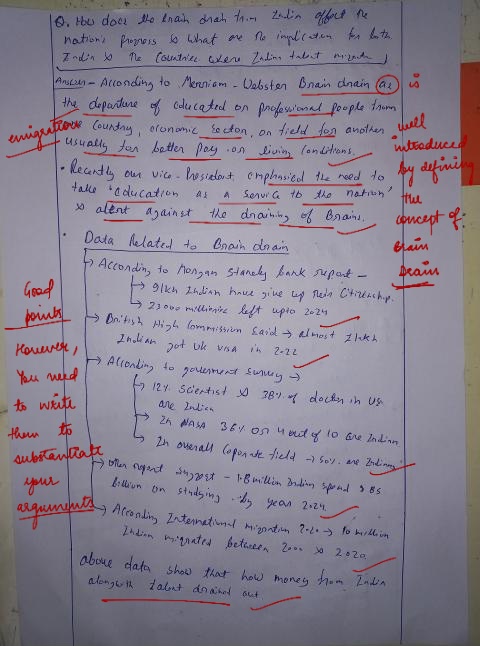 Q. How does the brain drain from India affect the
nation's progress & what are the implication for both
India & the countries where Indian talent migrate
Answer - According to Merriam-Webster Brain drain as is
the departure of educated or professional people from
emigration
one country, economic sector, or field for another
usually for better pay or living conditions.
well
introduced
by defining
the
concept of
Brain
Drain
• Recently our vice-President, emphasised the need to
take 'education as a service to the nation'
& alert against the draining of Brains.
• Data Related to Brain drain
Good
points
However,
You need
to write
them to
substantiate
your
arguments
→ According to Morgan Stanely bank report -
→ 9 lkh Indian have give up their citizenship.
→ 23000 millionire left upto 2024
→ British High Commission said → almost 1 lakh
Indian got UK visa in 2022
→ According to goverment survey →
→ 12% scientist & 38% of doctor in US
are Indian
→ In NASA 36% or 4 out of 10 are Indian
→ In overall coporate field → 50% are Indians
→ other report suggest - 1.8 million Indian spend $ 85
billion on studying by year 2024
→ According International migration 2020 → 10 million
Indian migrated between 2000 & 2020
above data show that how money from India
alongwith talent drained out